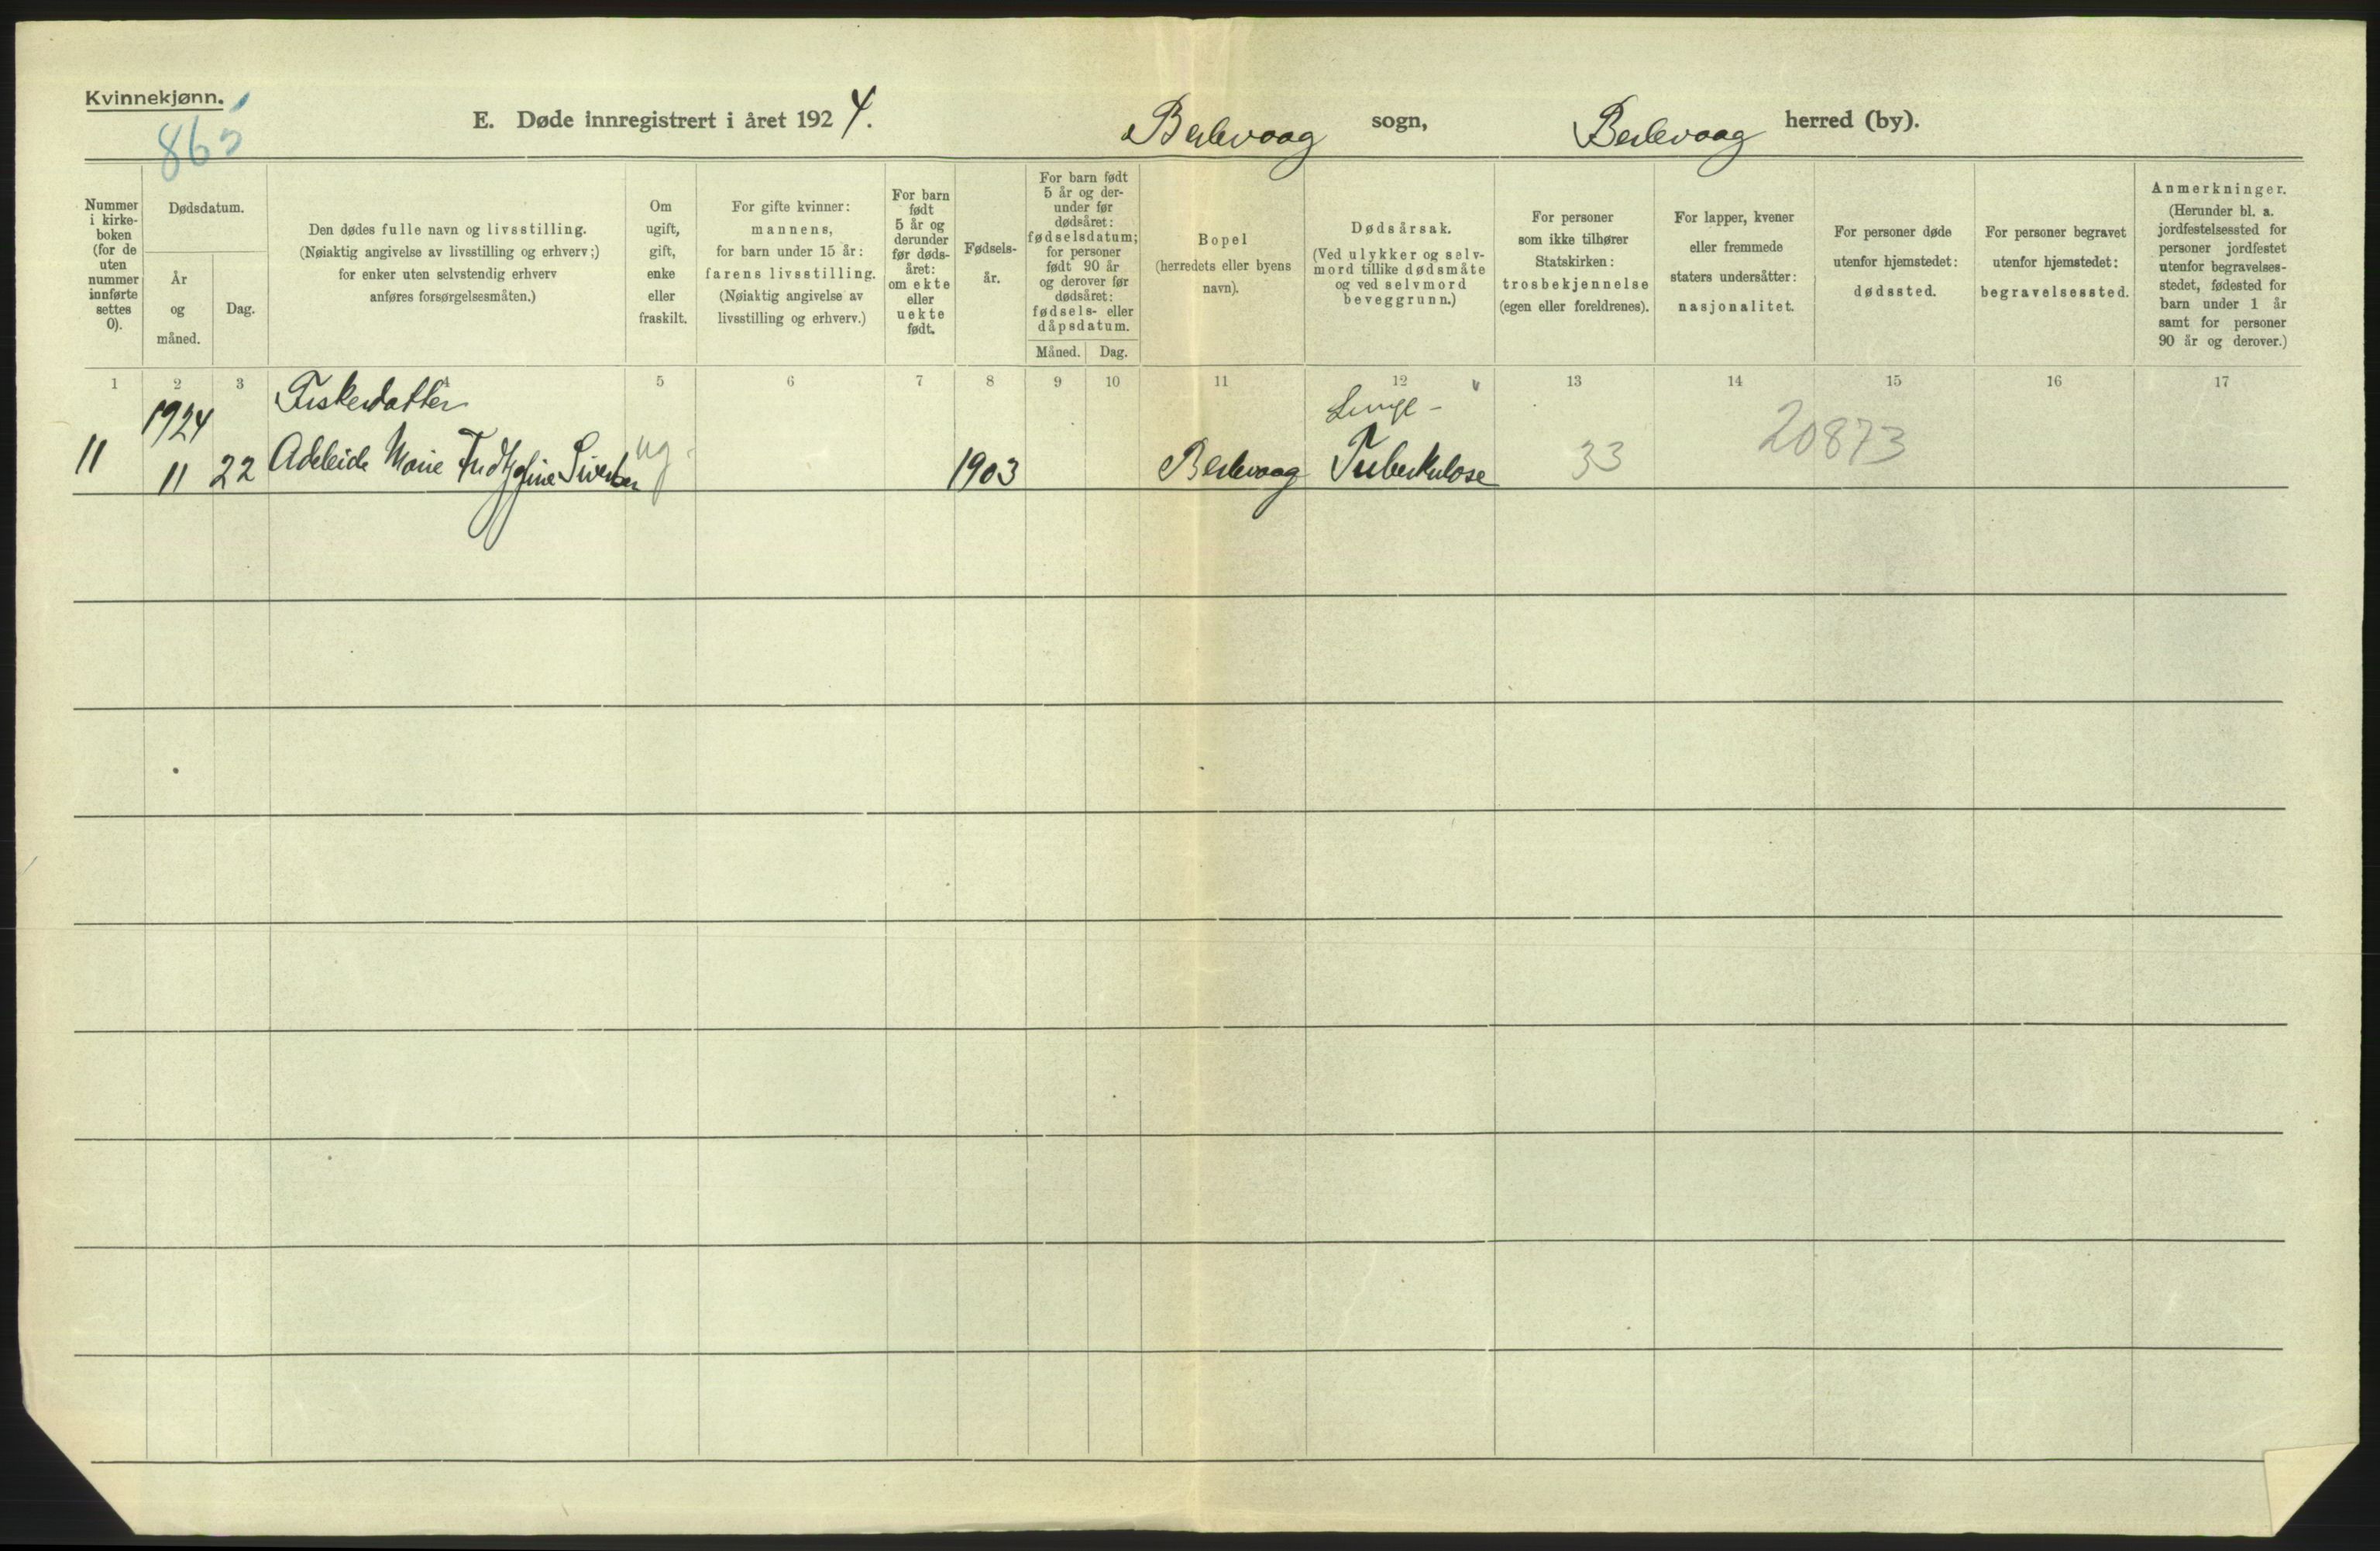 Kvinnekjønn.
865
E. Døde innregistrert i året 1924. Berlevaag sogn, Berlevaag herred (by).
Nummer i kirke-boken (for de uten nummer innførte settes 0).
Dødsdatum.
År og måned.
Dag.
Den dødes fulle navn og livsstilling.
(Nøiaktig angivelse av livsstilling og erhverv;)
for enker uten selvstendig erhverv
anføres forsørgelsesmåten.)
Om ugift, gift, enke eller fraskilt.
For gifte kvinner:
mannens,
for barn under 15 år:
farens livsstilling.
(Nøiaktig angivelse av
livsstilling og erhverv.)
For barn født 5 år og derunder før døds-året: om ekte eller uekte født.
Fødsels-år.
For barn født
5 år og der-
under før
dødsåret:
fødselsdatum;
for personer
født 90 år
og derover før
dødsåret:
fødsels- eller
dåpsdatum.
Måned. Dag.
Bopel
(herredets eller byens
navn).
Dødsårsak.
(Ved ulykker og selv-
mord tillike dødsmåte
og ved selvmord
beveggrunn.)
For personer
som ikke tilhører
Statskirken:
trosbekjennelse
(egen eller foreldrenes).
For lapper, kvener
eller fremmede
staters undersåtter:
nasjonalitet.
For personer døde
utenfor hjemstedet:
dødssted.
For personer begravet
utenfor hjemstedet:
begravelsessted.
Anmerkninger.
(Herunder bl. a.
jordfestelsessted for
personer jordfestet
utenfor begravelses-
stedet, fødested for
barn under 1 år
samt for personer
90 år og derover.)
1 2 3 4 5 6 7 8 9 10 11 12 13 14 15 16 17
1924 Fiskerdatter Lunge-
11 11 22 Adeleide Marie Fridtjofine Sivertsen ug. 1903 Berlevaag Tuberkulose 33 20873